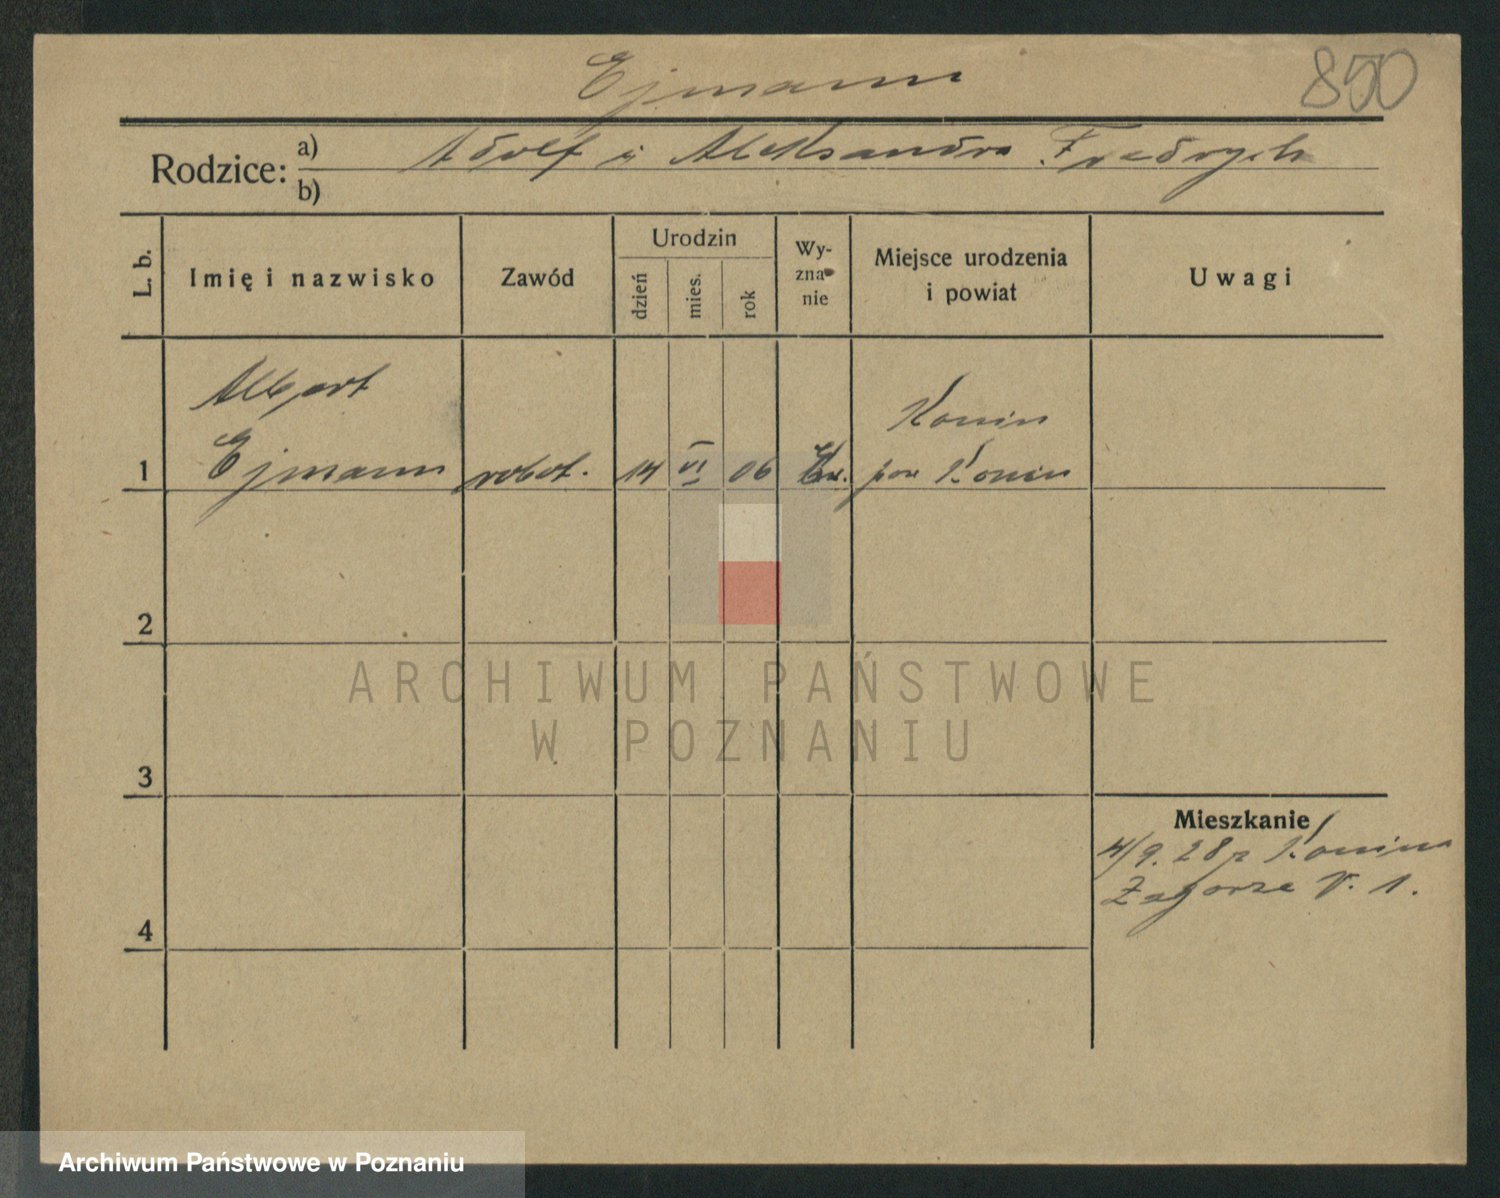 Ejmann
850
Rodzice: a) Adolf i Aleksandra Fredrych
b)
L. b.
Imię i nazwisko
Zawód
Urodzin
dzień
mies.
rok
Wy-
zna-
nie
Miejsce urodzenia
i powiat
Uwagi
Albert
Konin
1 Ejmann robot. 14 VI 06 pow Konin
2
3
4
Mieszkanie
4/9. 28 z Konina
Zagorze V. 1.
ARCHIWUM PAŃSTWOWE
W POZNANIU
Archiwum Państwowe w Poznaniu